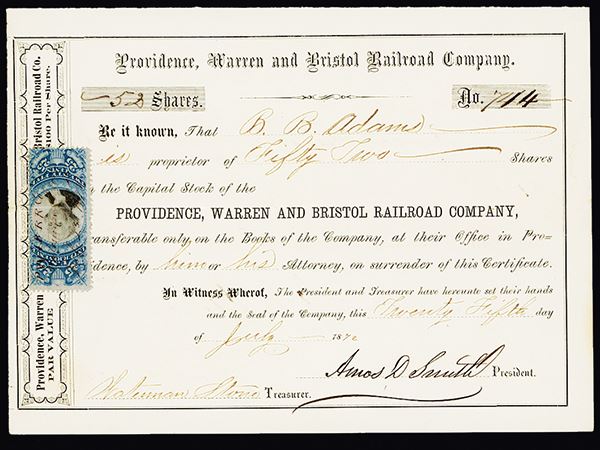 Providence, Warren and Bristol Railroad Company.
52 Shares. No. 714
Be it known, That B. B. Adams
is proprietor of Fifty Two Shares
the Capital Stock of the
PROVIDENCE, WARREN AND BRISTOL RAILROAD COMPANY,
transferable only, on the Books of the Company, at their Office in Pro-
vidence, by him or his Attorney, on surrender of this Certificate.
In Witness Wherof, The President and Treasurer have hereunto set their hands
and the Seal of the Company, this Twenty Fifth day
of July 187
Amos D. Smith President.
Waterman Stone Treasurer.
Providence, Warren Bristol Railroad Co.
PAR VALUE $100 Per Share.